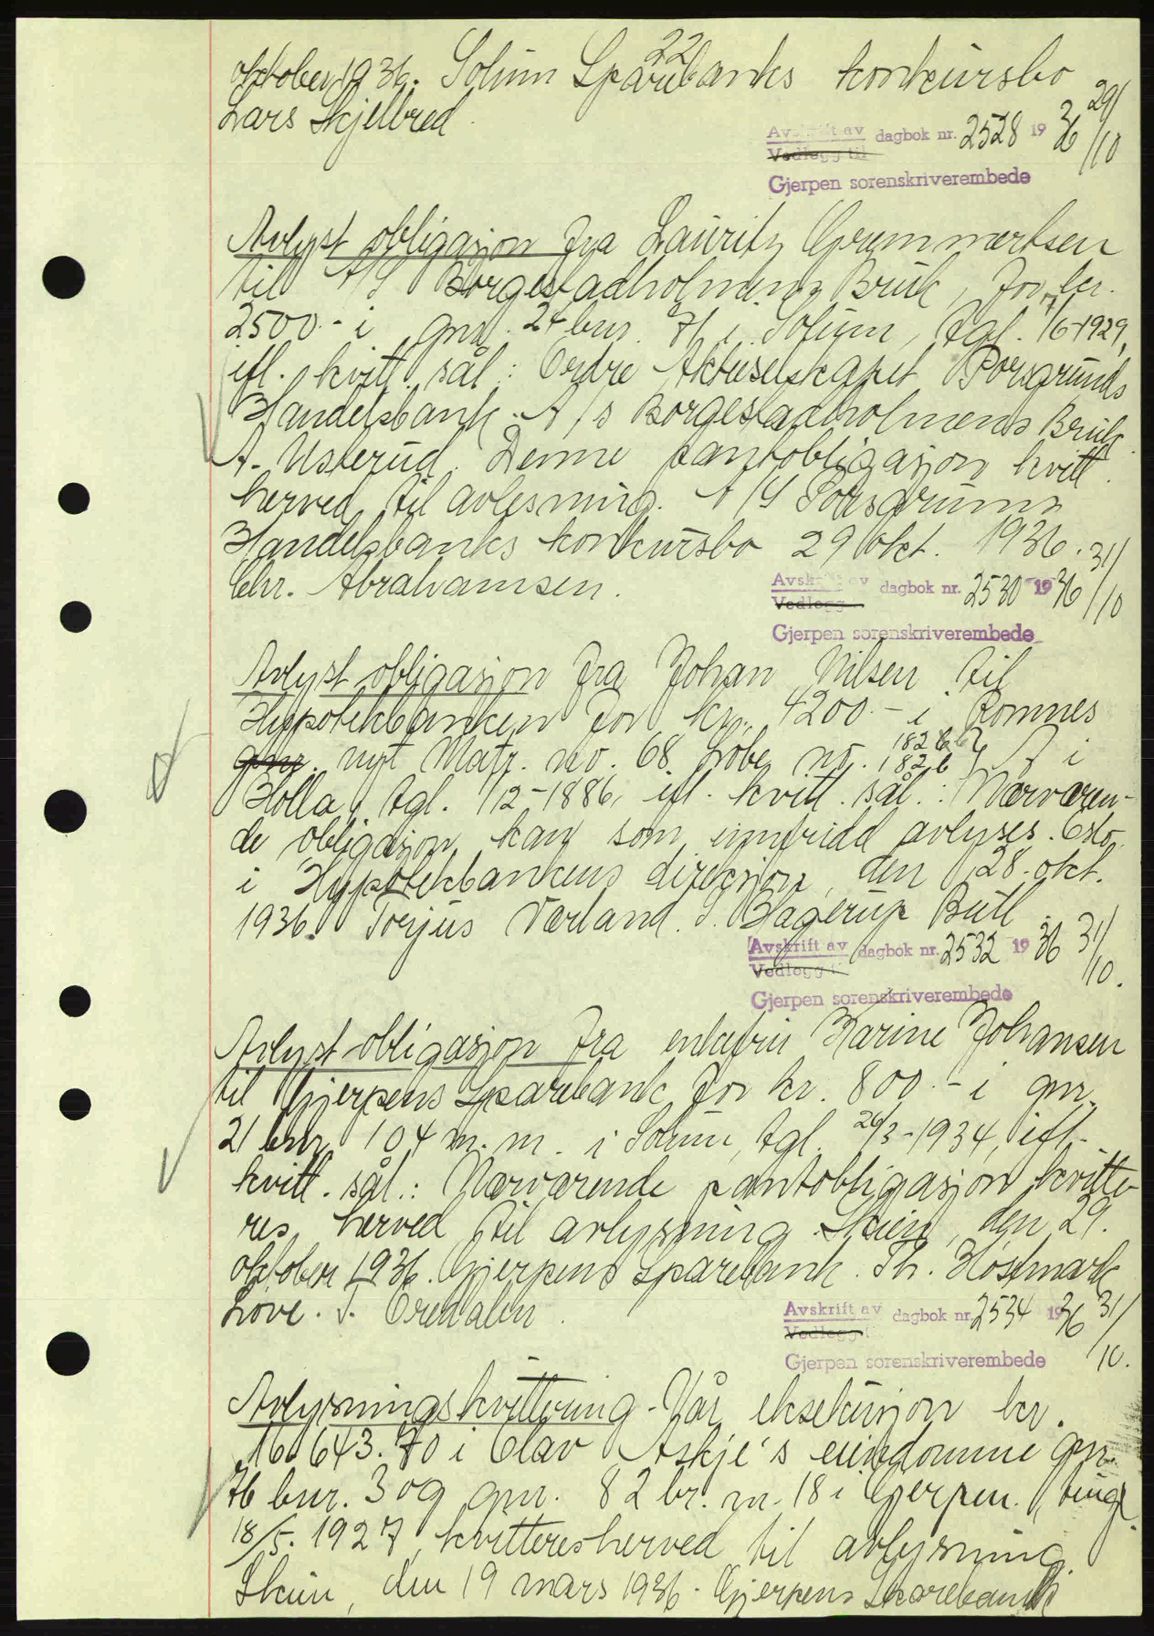 22
oktober 1936. Solum Sparebanks konkursbo
Lars Skjelbred.
Avskrift av dagbok nr. 2528 1936 29/10
Vedlegg til
Gjerpen sorenskriverembede
Avlyst obligasjon fra Lauritz Grummertsen
til A/S Borgestadholmens Bruk, for kr.
2500.- i gnr. 24 bnr. 71 i Solum, tgl. 7/6-1929,
ifl. kvitt. sål: Ordre Aktieselskapet Porsgrunds
Handelsbank. A/S Borgestadholmens Bruk
A. Usterud. Denne pantobligasjon kvitt.
herved til avlesning. A/S Porsgrunns
Handelsbanks konkursbo 29 okt. 1936.
Chr. Abrahamsen.
Avskrift av dagbok nr. 2530 1936 31/10
Vedlegg
Gjerpen sorenskriverembede
Avlyst obligasjon fra Johan Nilsen til
Hypotekbanken for kr. 4200.- i Romnes
gnr. nyt Matr. no. 68 Løbe no. 182 b i
Holla, tgl. 1/2-1886, ifl. kvitt. sål.: Nærværen-
de obligasjon kan som innfridd avlyses. Oslo,
i Hypotekbankens direksjon, den 28. okt.
1936. Torjus Værland. S. Hagerup Bull.
Avskrift av dagbok nr. 2532 1936 31/10.
Vedlegg til
Gjerpen sorenskriverembede
Avlyst obligasjon fra enkefru Karine Johansen
til Gjerpens Sparebank for kr. 800.- i gnr.
21 bnr. 104 m. m. i Solum, tgl. 26/3-1934, ifl.
kvitt. sål.: Nærværende pantobligasjon kvitte-
res herved til avlysning. Skien, den 29.
oktober 1936. Gjerpens Sparebank. Th. Høstmark
Løve. T. Oredalen.
Avskrift av dagbok nr. 2534 1936 31/10.
Vedlegg til
Gjerpen sorenskriverembede
Avlysningskvittering. Vår eksekusjon kr.
16.643.70 i Olav Askje's eiendomme gnr.
76 bnr. 3 og gnr. 82 br. nr. 18 i Gjerpen, tingl.
18/5. 1927, kvitteres herved til avlysning.
Skien, den 19 mars 1936. Gjerpens Sparebank